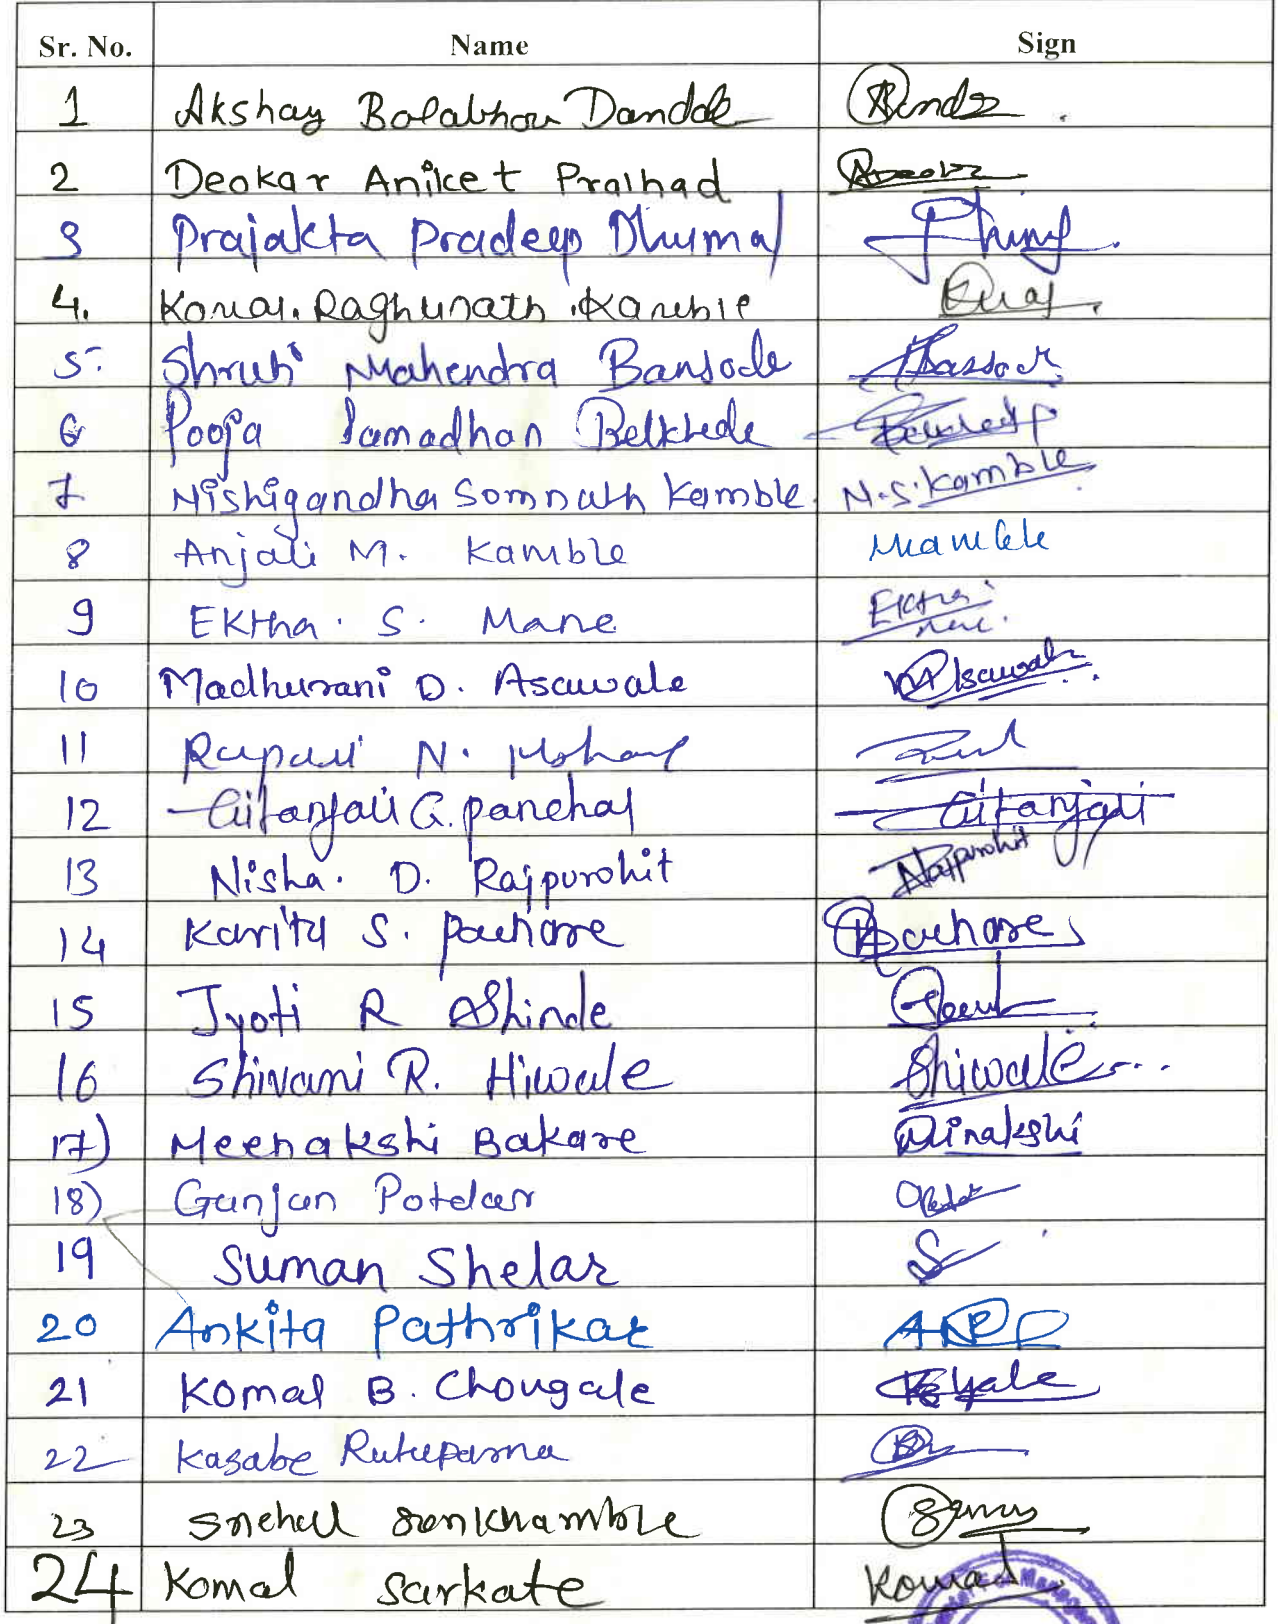 Sr. No. Name Sign
1 Akshay Balabhau Dandde
2 Deokar Aniket Pralhad
3 Prajakta Pradeep Dhumal
4. Komal. Raghunath . Kamble
5. Shruti Mahendra Bansode
6 Pooja Samadhan Belkhede
7 Nishigandha Somnath Kamble N.S.Kamble
8 Anjali M. Kamble
9 Ektha. S. Mane Ektha
10 Madhurani D. Asawale Asawale
11 Rupali N.
12 Gitanjali G. panchal Gitanjali
13 Nisha. D. Rajpurohit Rajpurohit
14 Kavita S. Pachare Pachare
15 Jyoti R Shinde
16 Shivani R. Hiwale Shiwale
17) Meenakshi Bakare Minakshi
18) Gunjan Potdar
19 Suman Shelar S
20 Ankita Pathrikar
21 Komal B. Chougale
22 Kasabe Rutuparna
23 Snehal Sonkhamble
24 Komal Sarkate Komal